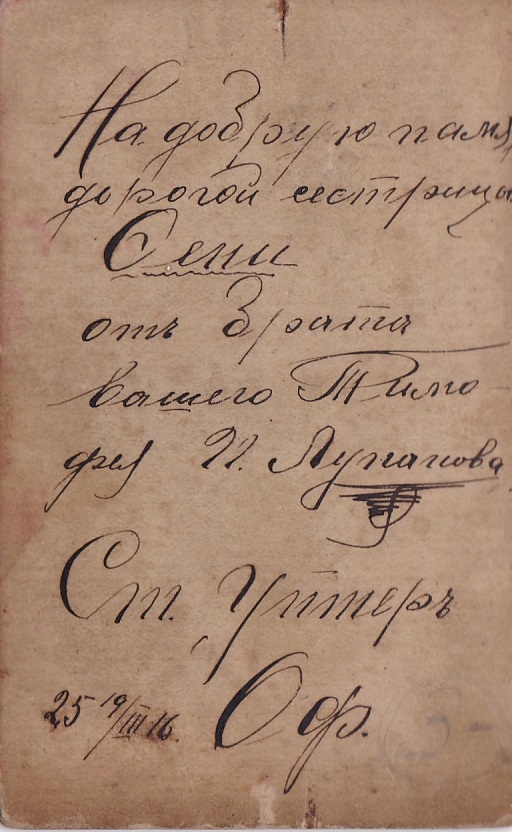 На добрую памя
дорогой сестрицы
Сени
отъ брата
вашего Тимо-
фея И. Лупанова
Ст. Уйтеръ
25 19/III 16. Оф.